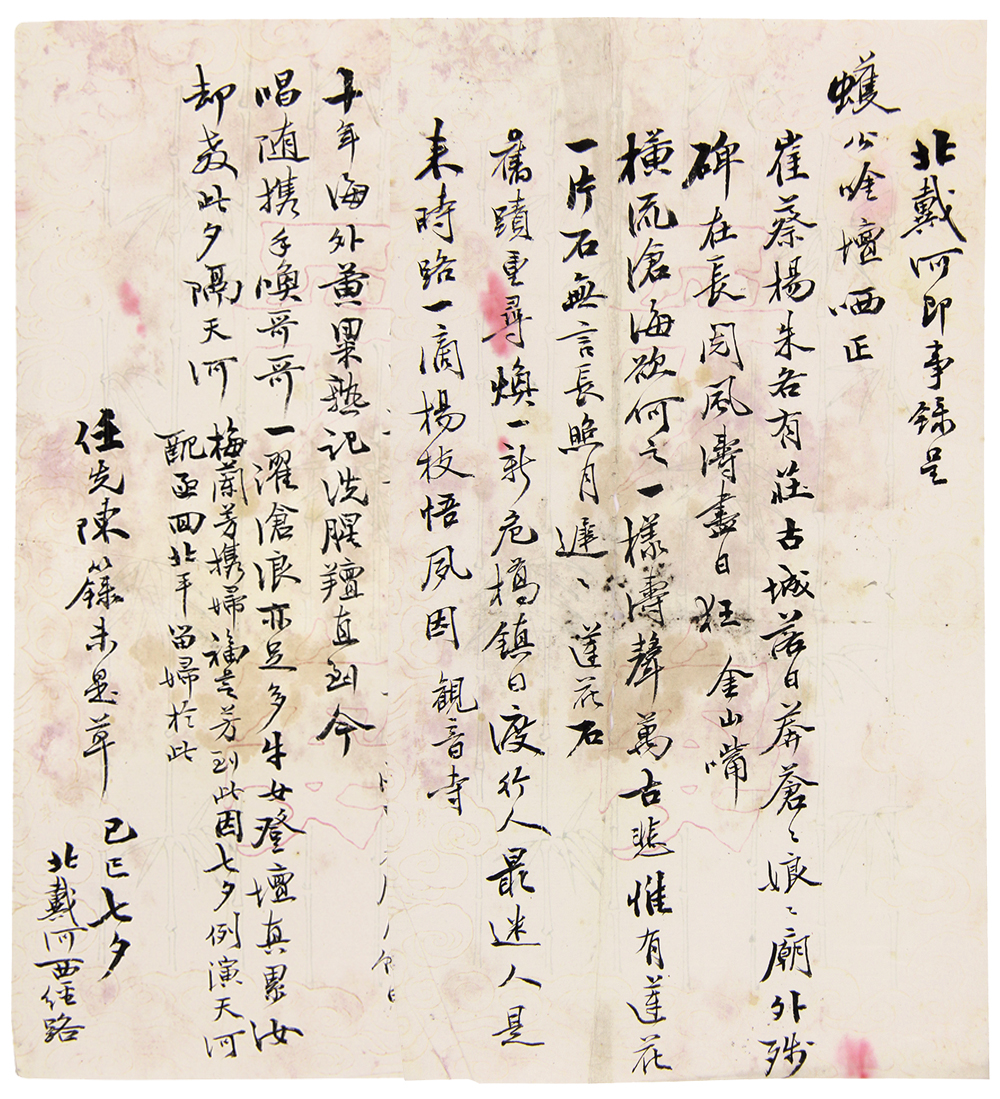 北戴河即事錄呈
蠖公唫壇哂正
崔蔡楊朱各有莊古城落日莽蒼〻娘〻廟外殘
碑在長閱風濤盡日狂 金山嘴
橫流滄海欲何之一樣濤聲萬古悲惟有蓮花
一片石無言長照月遲〻 蓮花石
舊蹟重尋煥一新危橋鎮日渡行人最迷人是
來時路一滴楊枝悟夙因 觀音寺
十年海外黃粱熟記洗腥羶直到今
唱隨攜手喚哥哥一濯滄浪亦足多牛女登壇真累汝
却教此夕隔天河 梅蘭芳攜婦福芝芳到此因七夕例演天河
配函回北平留婦於此
任先陳籙未是草 己巳七夕
北戴河西經路